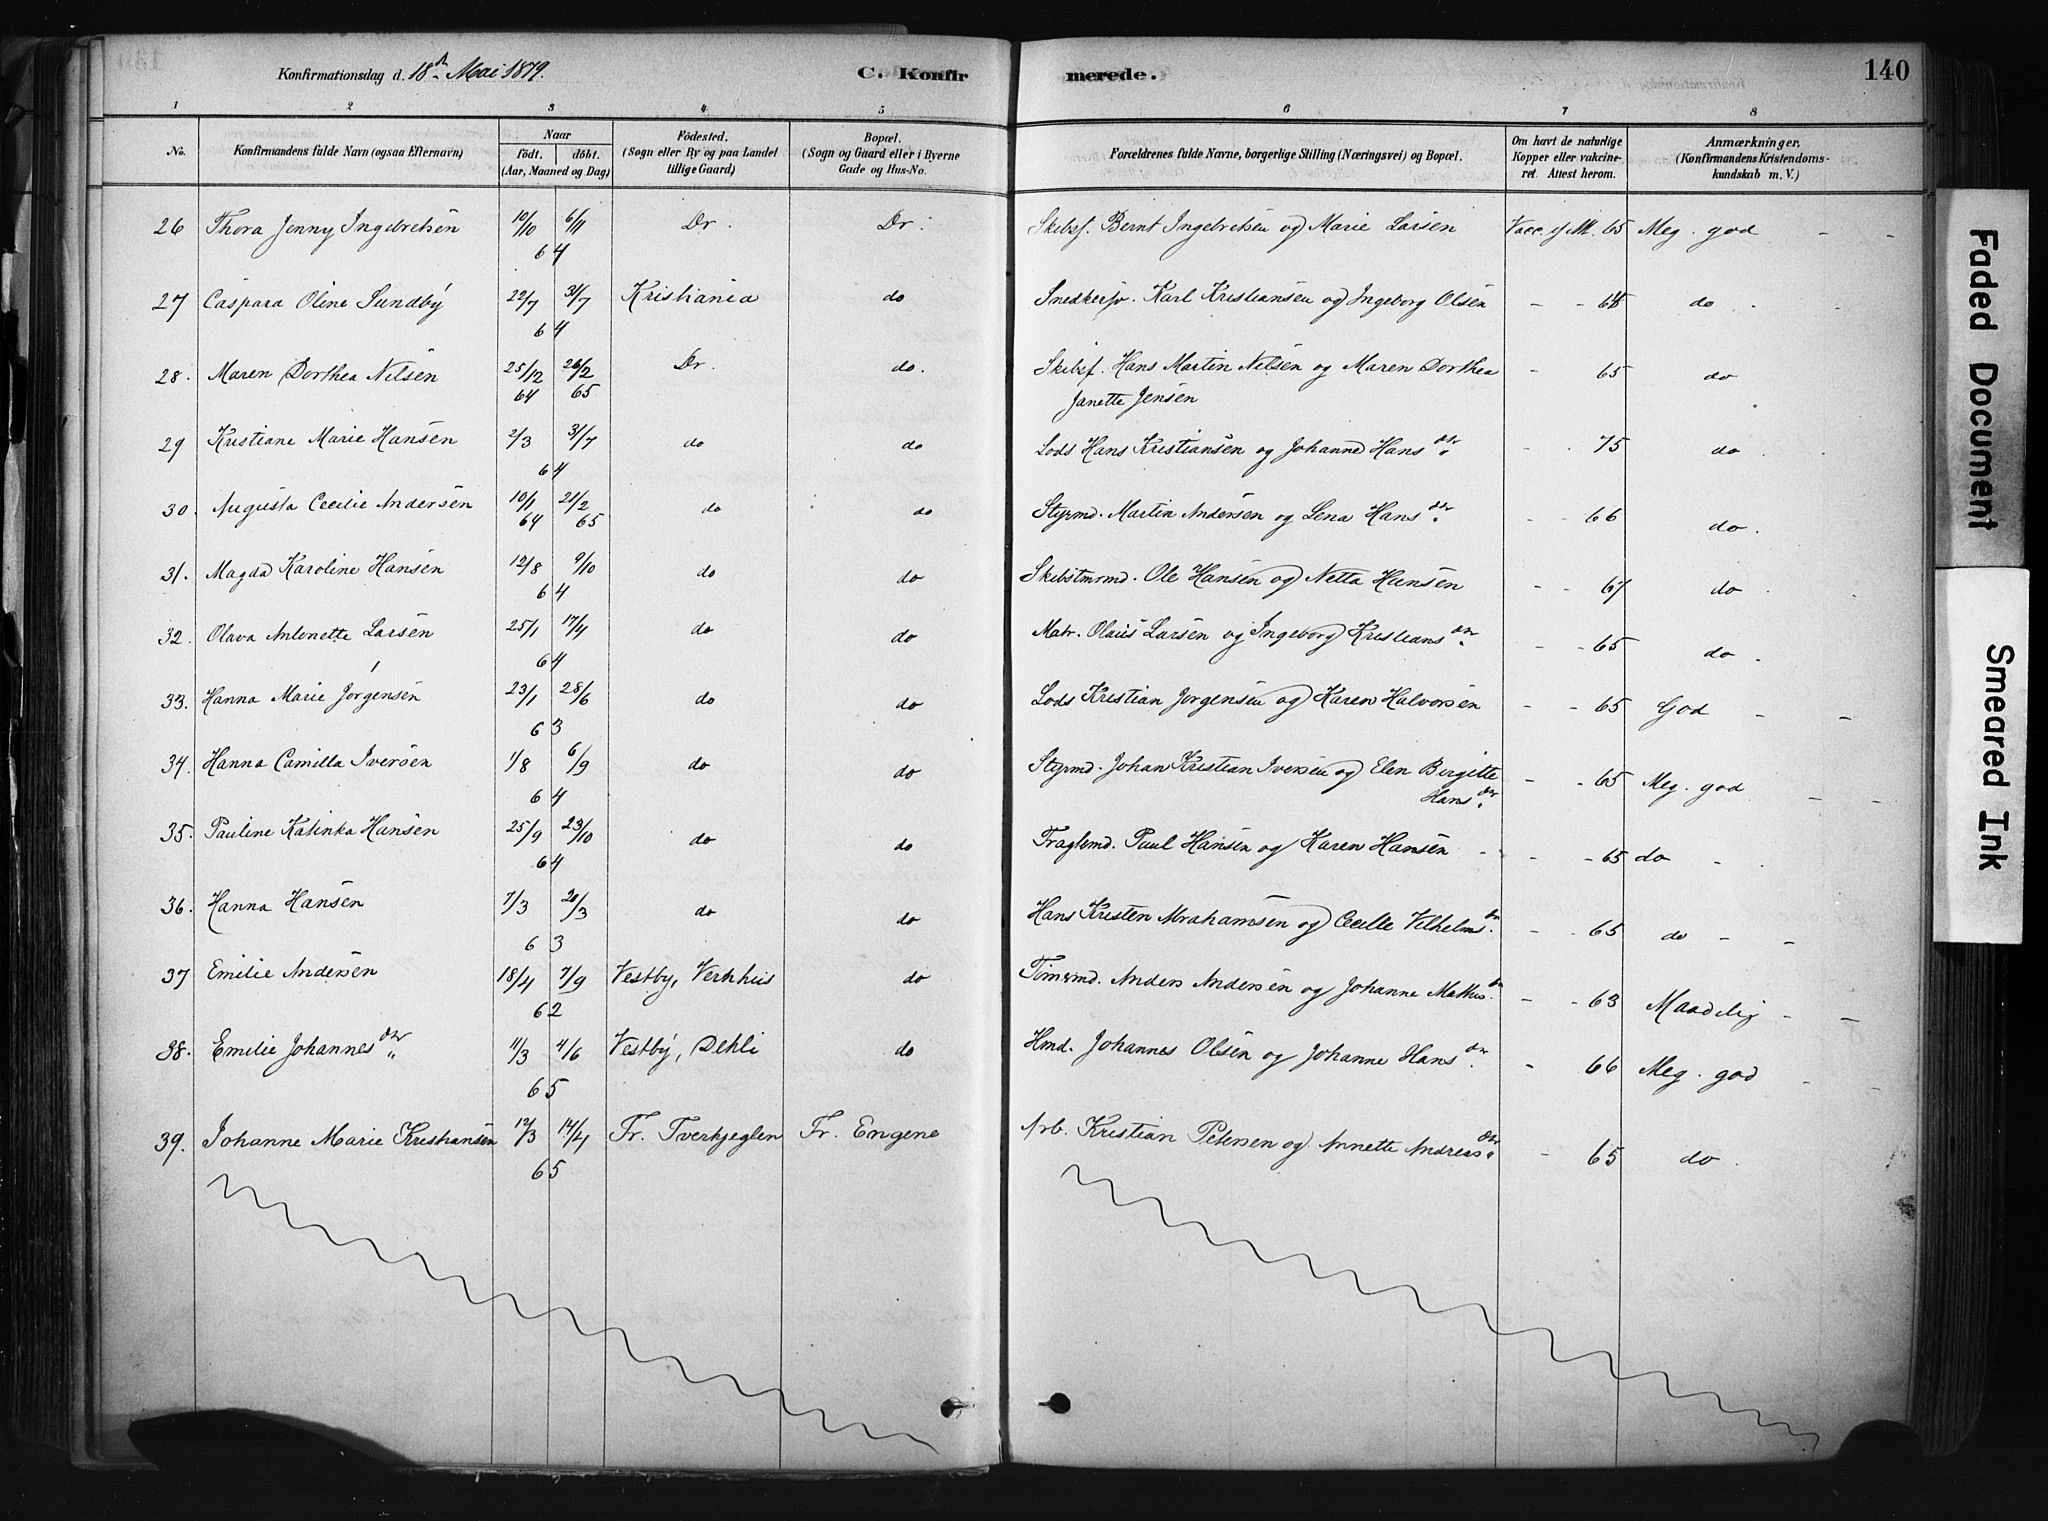 Konfirmationsdag d. 18de Mai 1879. C. Konfirmerede. 140
1 2 3 4 5 6 7 8
No. Konfirmandens fulde Navn (ogsaa Efternavn) Naar födt. döbt. (Aar, Maaned og Dag) Födested. (Sogn eller By og paa Landet tillige Gaard) Bopæl. (Sogn og Gaard eller i Byerne Gade og Hus-No. Forældrenes fulde Navne, borgerlige Stilling (Næringsvei) og Bopæl. Om havt de naturlige Kopper eller vakcineret. Attest herom. Anmærkninger. (Konfirmandens Kristendomskundskab m. V.)
26 Thora Jenny Ingebretsen 10/10 6/11 64 Dr. Dr. Skibsf. Bernt Ingebretsen og Marie Larsen Vacc. ef. Att. 65 Meg. god - -
27 Caspara Oline Sundby 22/7 31/7 64 Kristiania do Snedkersv. Karl Kristiansen og Ingeborg Olsen - - 68 do
28. Maren Dorthea Nilsen 25/12 64 26/2 65 Dr. do. Skibsf. Hans Martin Nilsen og Maren Dorthea
Janette Jensen - 65 do
29 Kristiane Marie Hansen 2/3 31/7 64 do do Lods Hans Kristiansen og Johanne Hansdtr - - 75 do
30. Augusta Cecilie Andersen 10/1 64 21/2 65 do do Styrmd. Martin Andersen og Lena Hansdtr - - 66 do.
31. Magda Karoline Hansen 12/8 9/10 64 do do Skibstmrmd. Ole Hansen og Netta Hansen - - 67 do
32. Olava Antonette Larsen 25/1 17/4 64 do do Matr. Olaus Larsen og Ingeborg Kristiansdtr - - 65 do
33. Hanna Marie Jørgensen 23/1 28/6 63 do do Lods Kristian Jørgensen og Karen Halvorsen - - 65 God - -
34. Hanna Camilla Iversen 1/8 6/9 64 do do Styrmd. Johan Kristian Iversen og Elen Birgitte
Hansdtr - - 65 Meg. god - -
35. Pauline Katinka Hansen 25/9 23/10 64 do do Fragtemd. Paul Hansen og Karen Hansen - - - 65 do -
36. Hanna Hansen 7/3 20/3 63 do do Hans Kristen Abrahamsen og Cecilie Vilhelmsdtr - - 65 do - -
37 Emilie Andersen 18/4 7/9 62 Vestby, do Tømrmd. Anders Andersen og Johanne Mathisdtr - - 63 Maadelig - -
38. Emilie Johannesdtr 11/3 4/6 65 Vestby, Dehli do Hmd. Johannes Olsen og Johanne Hansdtr - 66 Meg. god - -
39. Johanne Marie Kristiansen 12/3 17/4 65 Fr. Tverkjeglen Fr. Engene Arb. Kristian Petersen og Annette Andreasdtr - 65 do
Faded Document
Smeared Ink